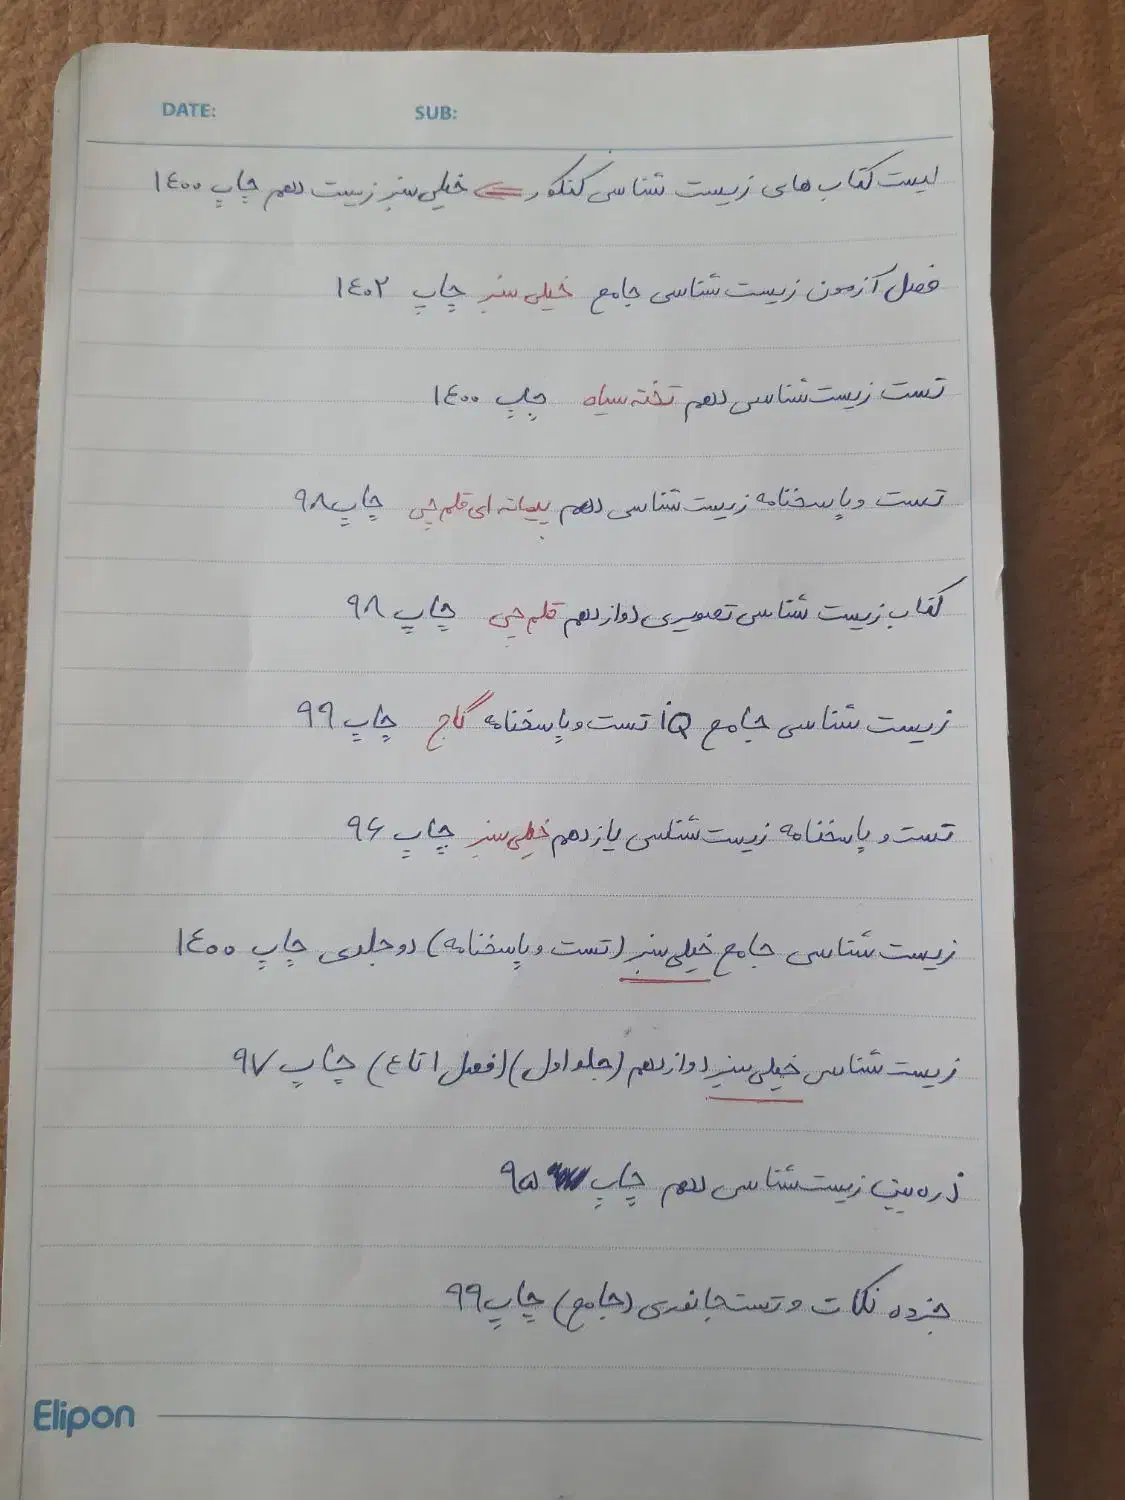 DATE: SUB:
لیست کتاب های زیست شناسی کنکور ⇐ خیلی سبز زیست دهم چاپ ۱۴۰۰
فصل آزمون زیست شناسی جامع خیلی سبز چاپ ۱۴۰۲
تست زیست شناسی دهم تخته سیاه چاپ ۱۴۰۰
تست و پاسخنامه زیست شناسی دهم پیمانه ای قلم چی چاپ ۹۸
کتاب زیست شناسی تصویری دوازدهم قلم چی چاپ ۹۸
زیست شناسی جامع iQ تست و پاسخنامه گاج چاپ ۹۹
تست و پاسخنامه زیست شناسی یازدهم خیلی سبز چاپ ۹۶
زیست شناسی جامع خیلی سبز (تست و پاسخنامه) دو جلدی چاپ ۱۴۰۰
زیست شناسی خیلی سبز دوازدهم (جلد اول) (فصل ۱ تا ۴) چاپ ۹۷
ذره بینی زیست شناسی دهم چاپ ۹۵
جزوه نکات و تست جانوری (جامع) چاپ ۹۹
Elipon